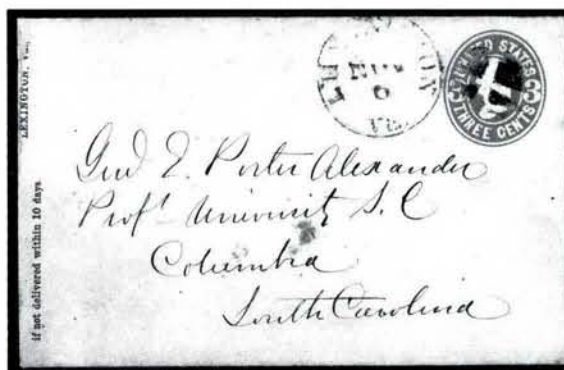 LEXINGTON, Va.,
if not delivered within 10 days
LEXINGTON
NOV
6
VA
UNITED STATES
THREE CENTS
Genl E. Porter Alexander
Prof. University S. C
Columbia
South Carolina